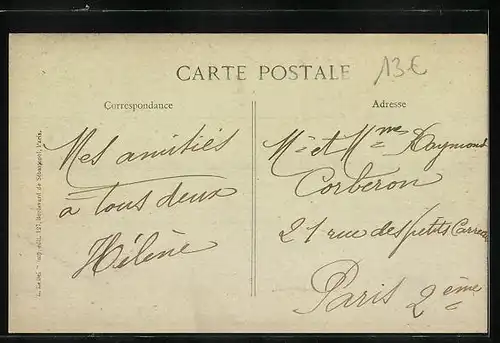 13€
CARTE POSTALE
Correspondance
Adresse
Mes amitiés
à tous deux
Hélène
Mr et Mme Raymond
Corberon
21 rue des petits Carreaux
Paris 2ème
127, Boulevard de Sébastopol, Paris.